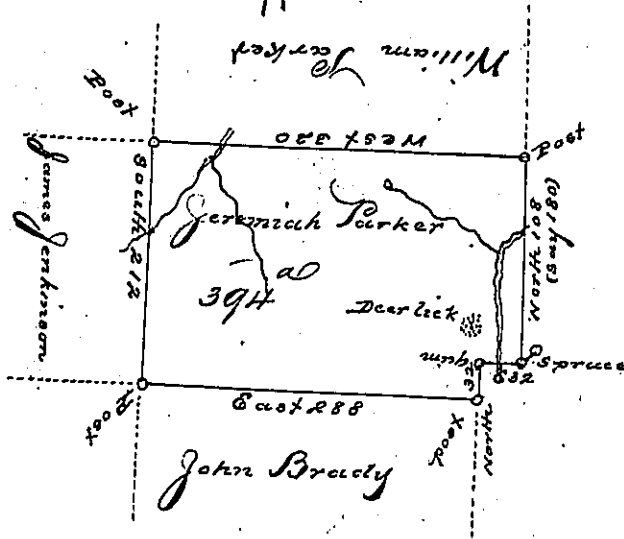 William Parker
Post
West 320
Post
James Jenkinson
South 212
Jeremiah Parker
394 a
North 180
(says 180)
Deer lick
Gum
Spruce
32
S32
Post
East 288
Post
North
John Brady